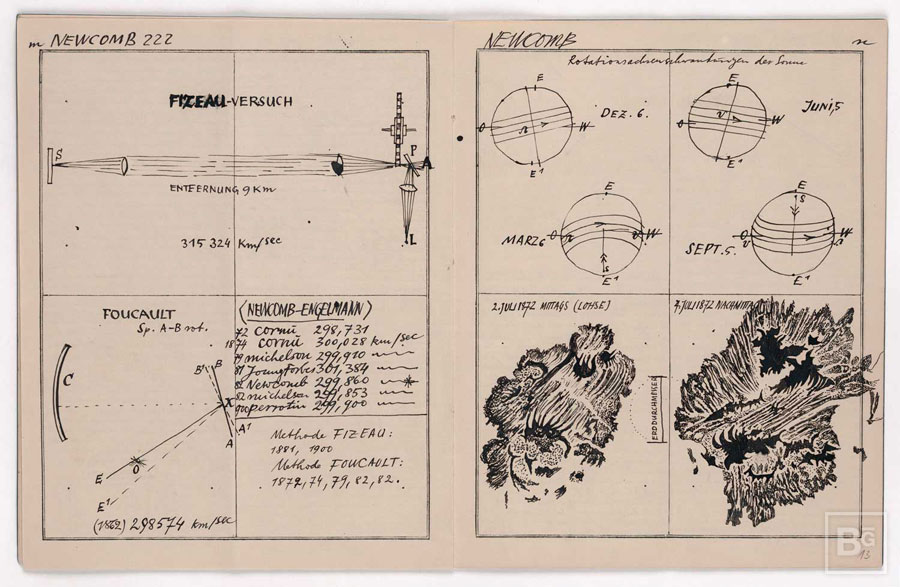 m NEWCOMB 222
FIZEAU-VERSUCH
S
P
A
ENTFERNUNG 9 Km
315 324 Km/sec
L
FOUCAULT
Sp. A-B rot.
C
B' B
X
A A'
E
O
E'
(1862) 298574 km/sec
(NEWCOMB-ENGELMANN)
72 Cornu 298,731
1874 Cornu 300,028 km/sec
79 michelson 299,910
81 Young Forbes 301,384
82 Newcomb 299,860
82 michelson 299,853
900 Perrotin 299,900
Methode FIZEAU:
1881, 1900
Methode FOUCAULT:
1872, 74, 79, 82, 82.
NEWCOMB
n
Rotationsachsenschwankungen der Sonne
E
DEZ. 6.
O
W
E1
E
JUNI, 5
O
W
E1
E
MARZ 6
O
W
S
E1
E
S
SEPT. 5.
O
W
E1
2. JULI 1872 MITTAGS (LOHSE)
ERDDURCHMESSER
7. JULI 1872 NACHMITTAG
13
BG